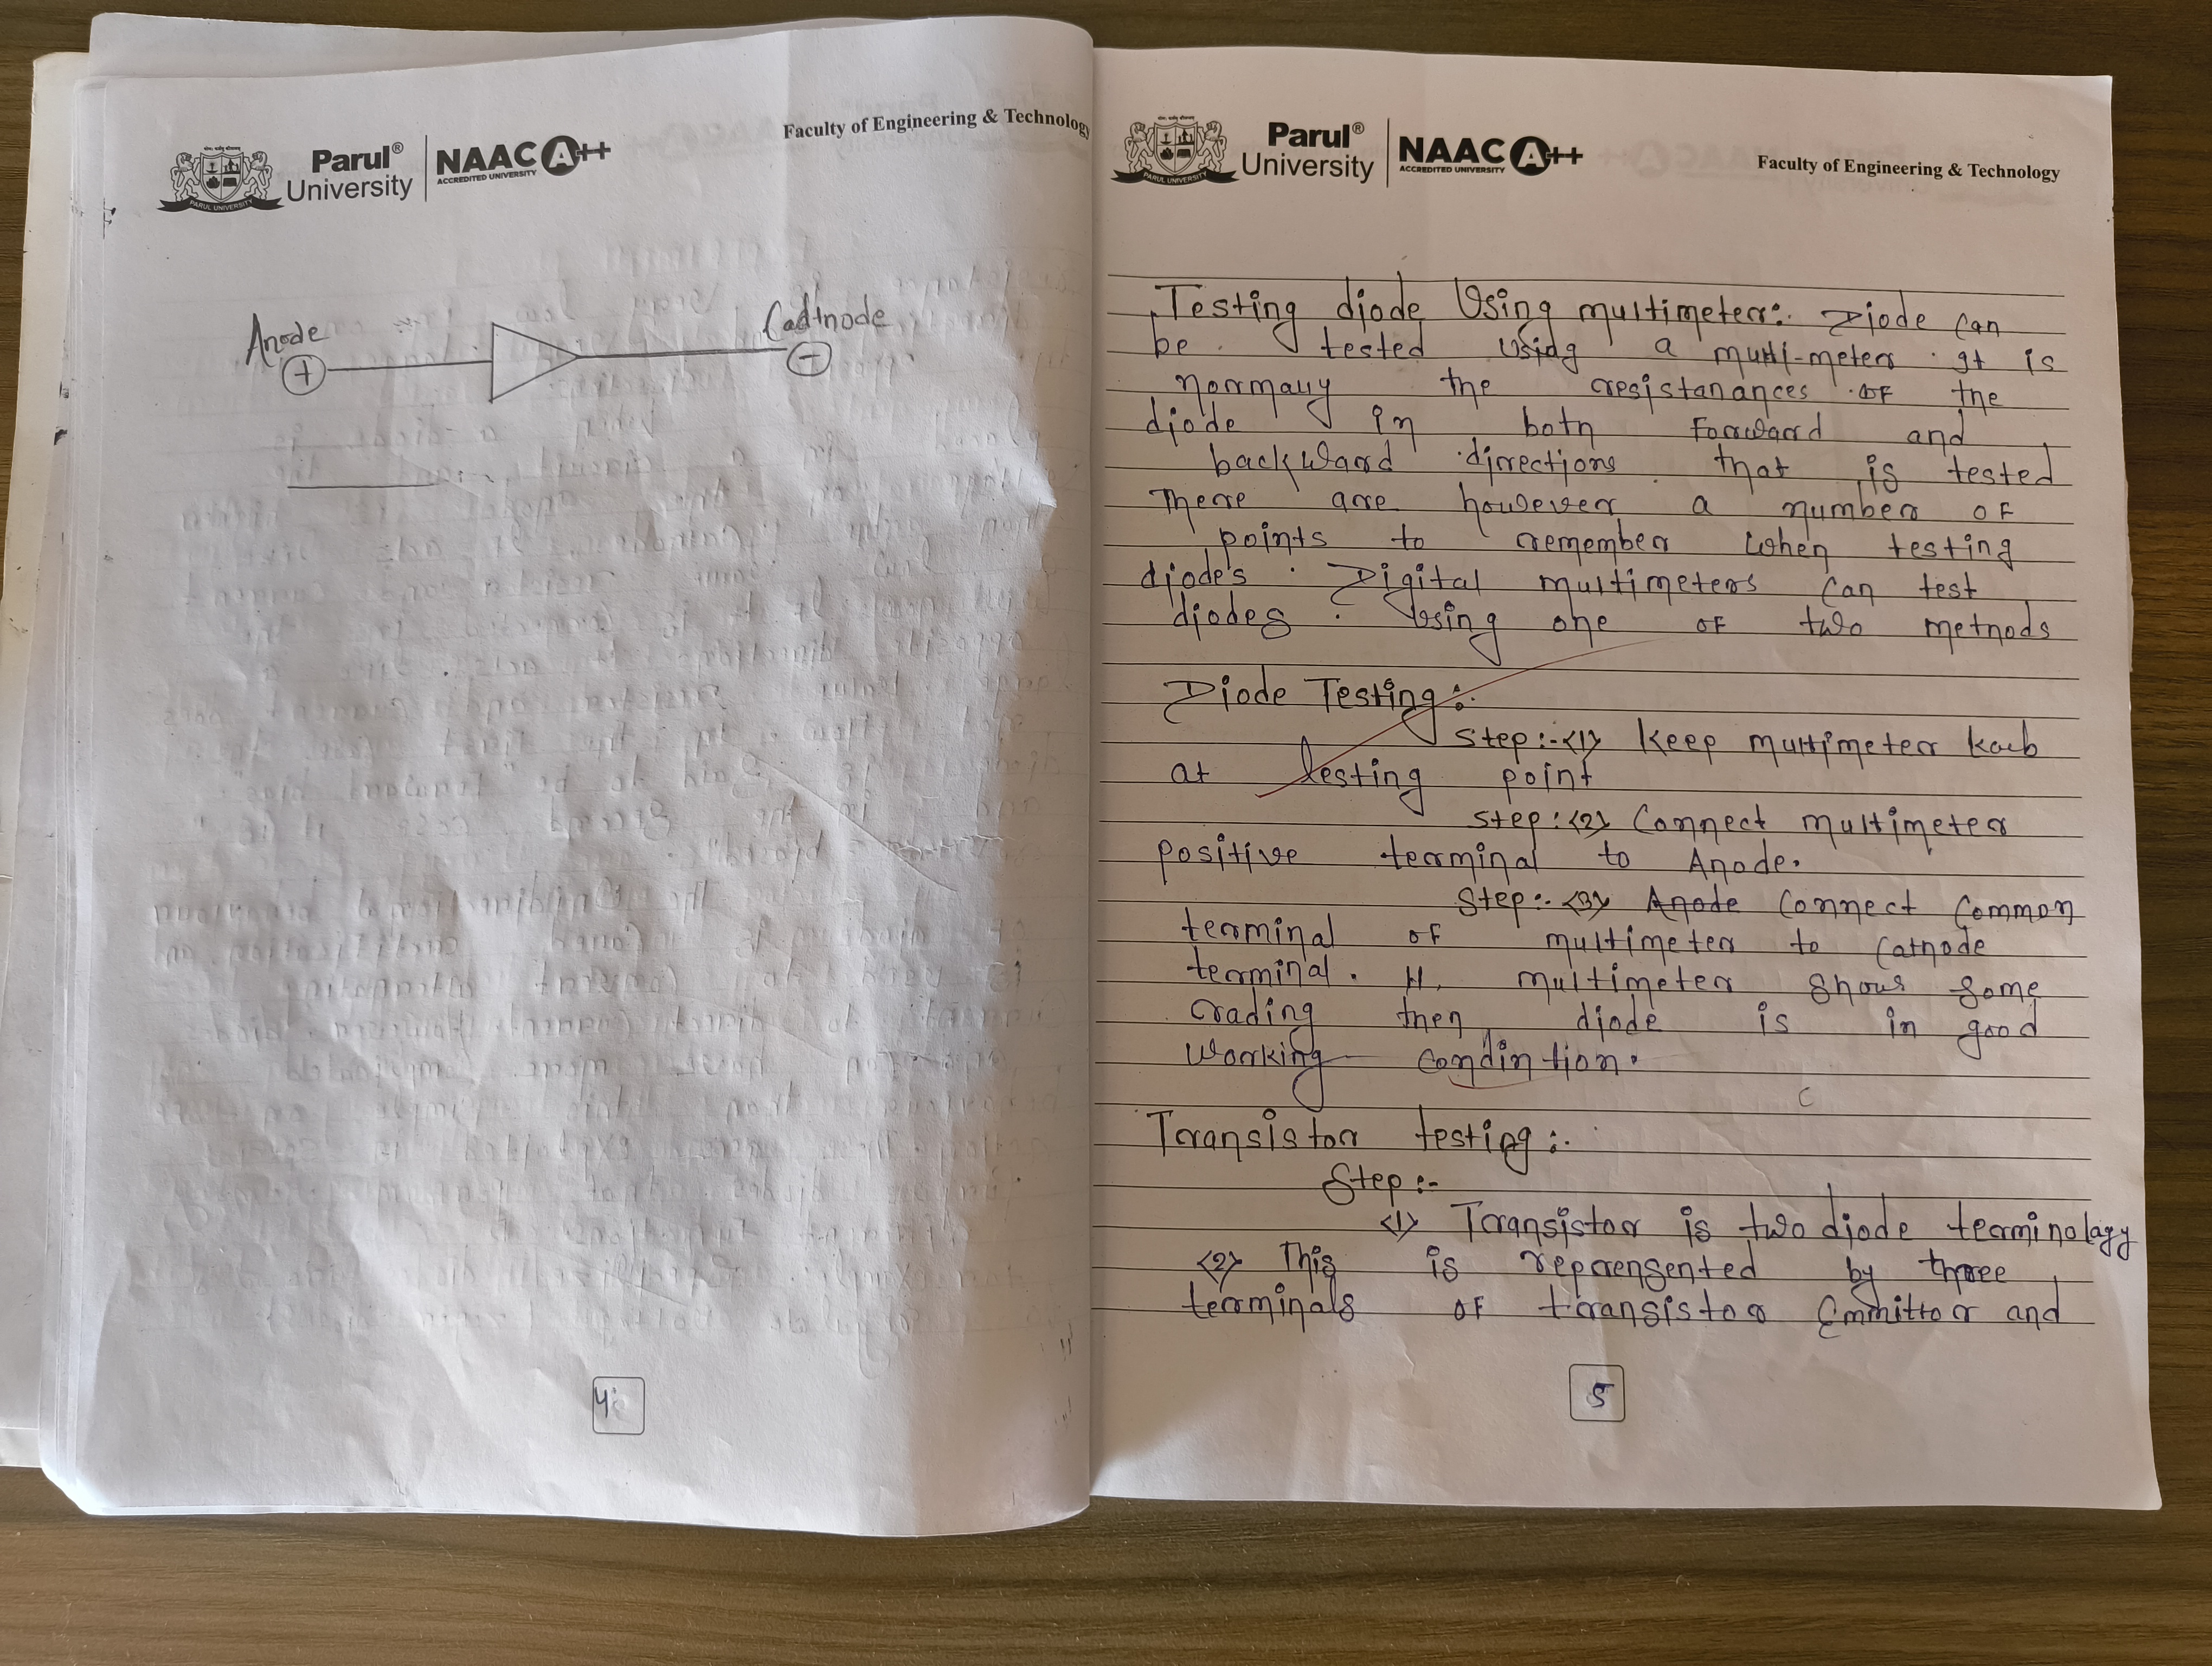 Parul® University
NAAC A++
ACCREDITED UNIVERSITY
PARUL UNIVERSITY
Faculty of Engineering & Technology
Anode
Cadtnode
+
-
4
Parul® University
NAAC A++
ACCREDITED UNIVERSITY
PARUL UNIVERSITY
Faculty of Engineering & Technology
Testing diode Using multimeter:. Diode can
be tested usidg a multi-meter. It is
normally the resistanances of the
diode in both Forward and
backward directions that is tested
There are however a number of
points to remember when testing
diodes. Digital multimeters can test
diodes. Using one of two methods
Diode Testing:.
Step:-<1> Keep multimeter
at testing point
Step:<2> Connect multimeter
positive terminal to Anode.
Step:-<3> Anode Connect Common
terminal of multimeter to Cathode
terminal. multimeter shows some
rading then diode is in good
working condintion.
C
Transistor testing:.
Step:-
<1> Transistor is two diode terminology
<2> This is reprensented by three
terminals of transistor Emmittor and
5